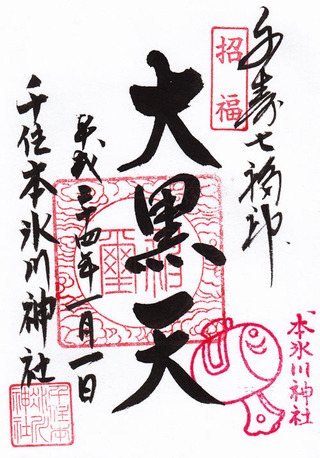 千寿七福神
招福
大黒天
平成二十四年一月一日
千住本氷川神社
本氷川神社
千住本氷川神社